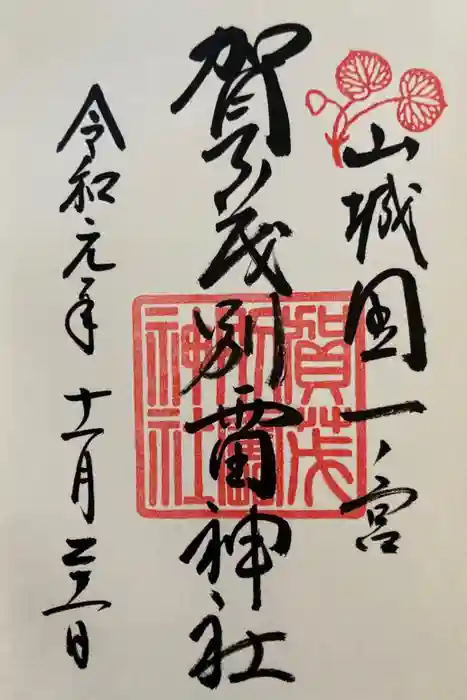 山城国一ノ宮
賀茂別雷神社
令和元年 十一月二三日
賀茂
別雷
神社